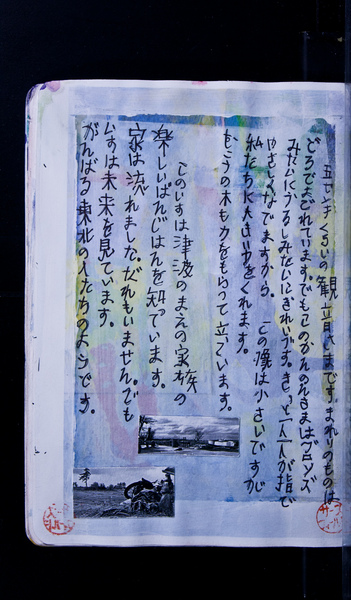 五センチくらいの観音さまです。まわりのものは
どろでよごれていますでもこのかんのんさまはブロンズ
みたいにうるしみたいにきれいです。きっと一人一人が指で
やさしくなでますから。この像は小さいですが
私たちに大きい力をくれます。
むこうの木も力をもらって立っています。
このいすは津波のまえの家族の
楽しいばんごはんを知っています。
家は流れました。だれもいません。でも
いすは未来を見ています。
がんばる東北の人たちのようです。